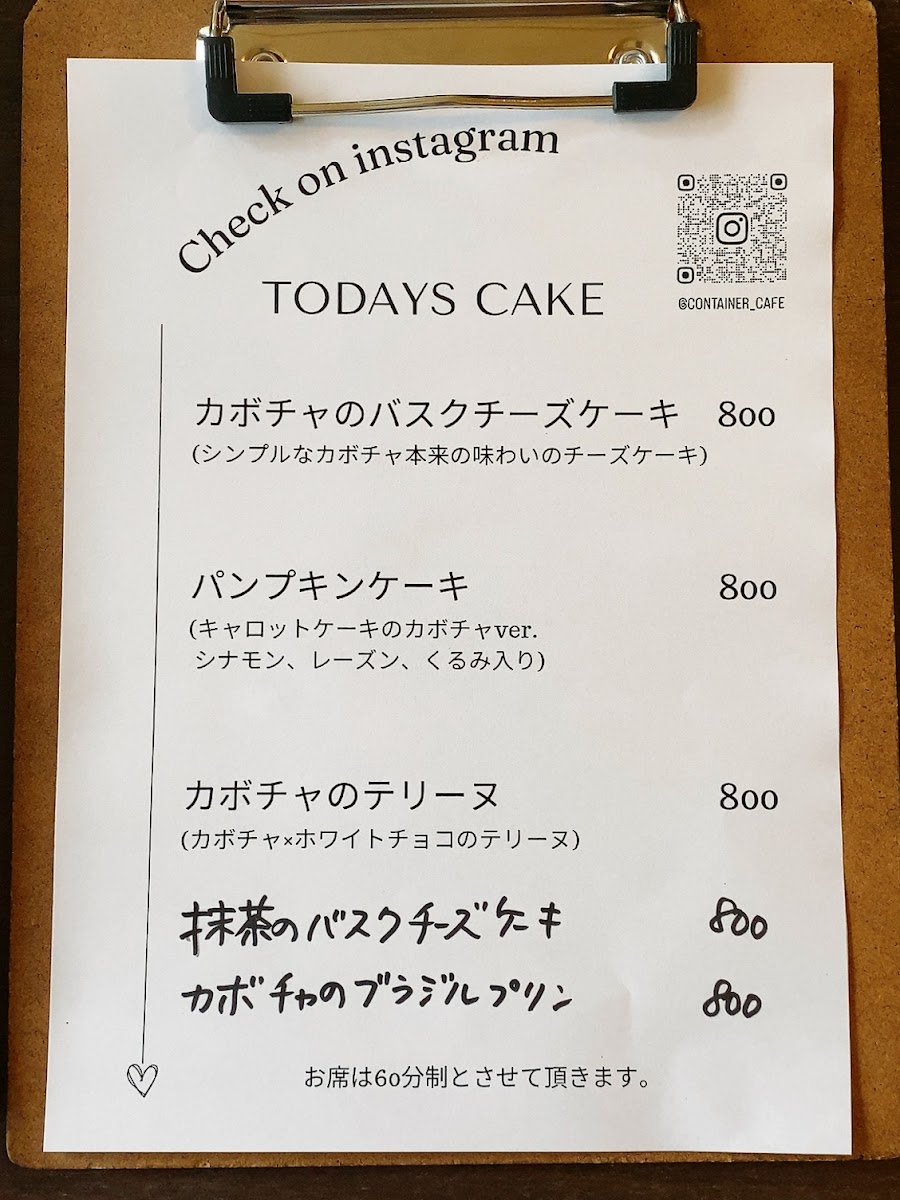 Check on instagram
@CONTAINER_CAFE
TODAYS CAKE
カボチャのバスクチーズケーキ 800
(シンプルなカボチャ本来の味わいのチーズケーキ)
パンプキンケーキ 800
(キャロットケーキのカボチャver.
シナモン、レーズン、くるみ入り)
カボチャのテリーヌ 800
(カボチャ×ホワイトチョコのテリーヌ)
抹茶のバスクチーズケーキ 800
カボチャのブラジルプリン 800
お席は60分制とさせて頂きます。